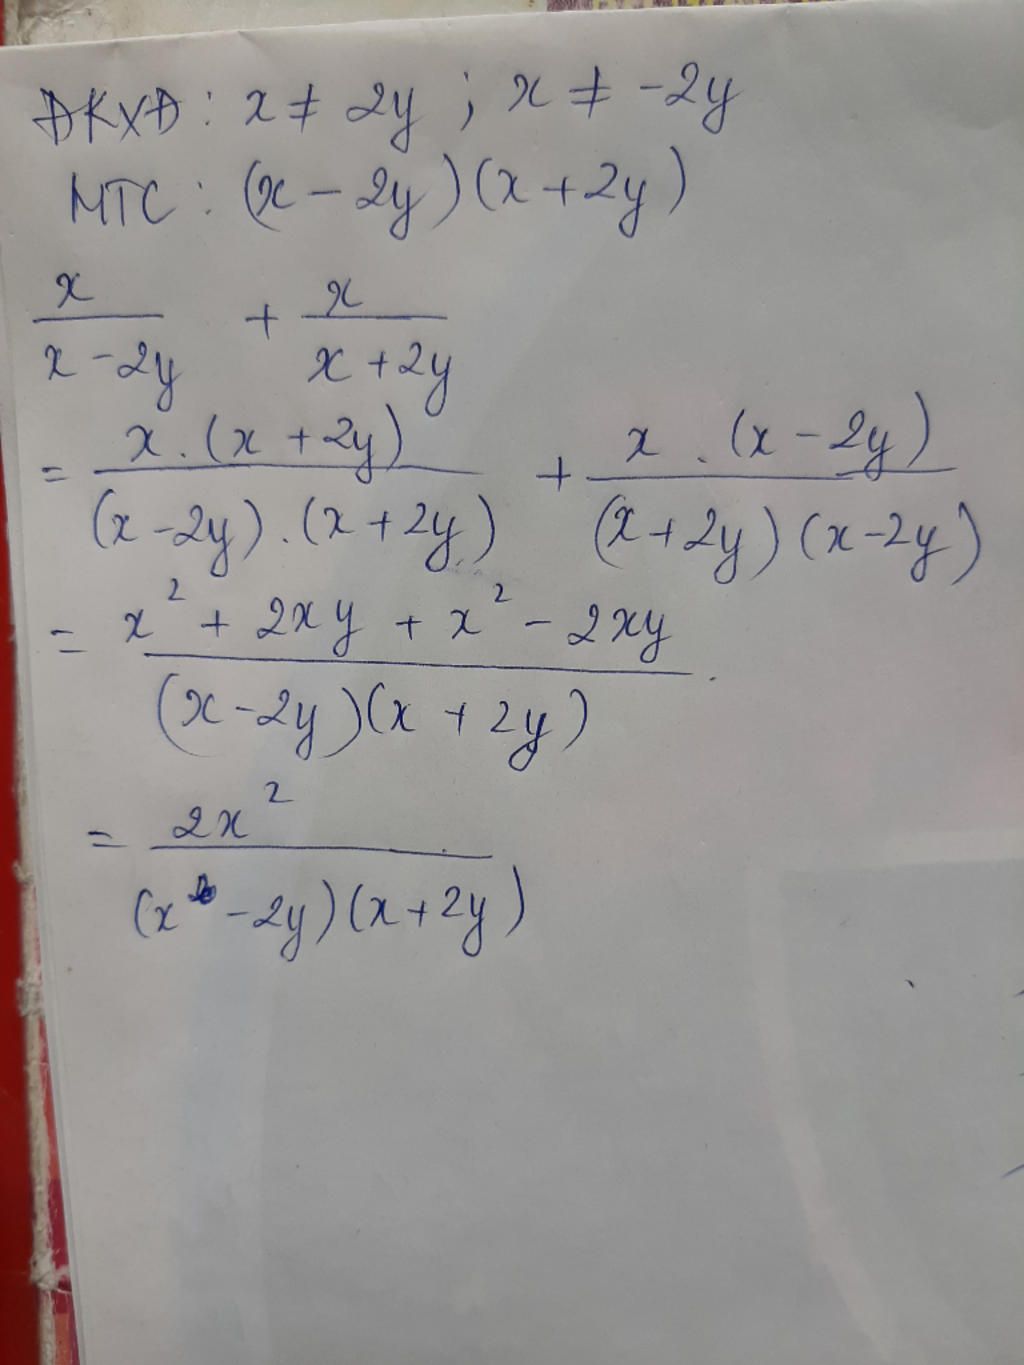 ĐKXĐ: x ≠ 2y ; x ≠ -2y
MTC: (x - 2y)(x + 2y)
x/(x - 2y) + x/(x + 2y)
= x.(x + 2y)/((x - 2y).(x + 2y)) + x.(x - 2y)/((x + 2y)(x - 2y))
= (x² + 2xy + x² - 2xy)/((x - 2y)(x + 2y)).
= 2x²/((x - 2y)(x + 2y))